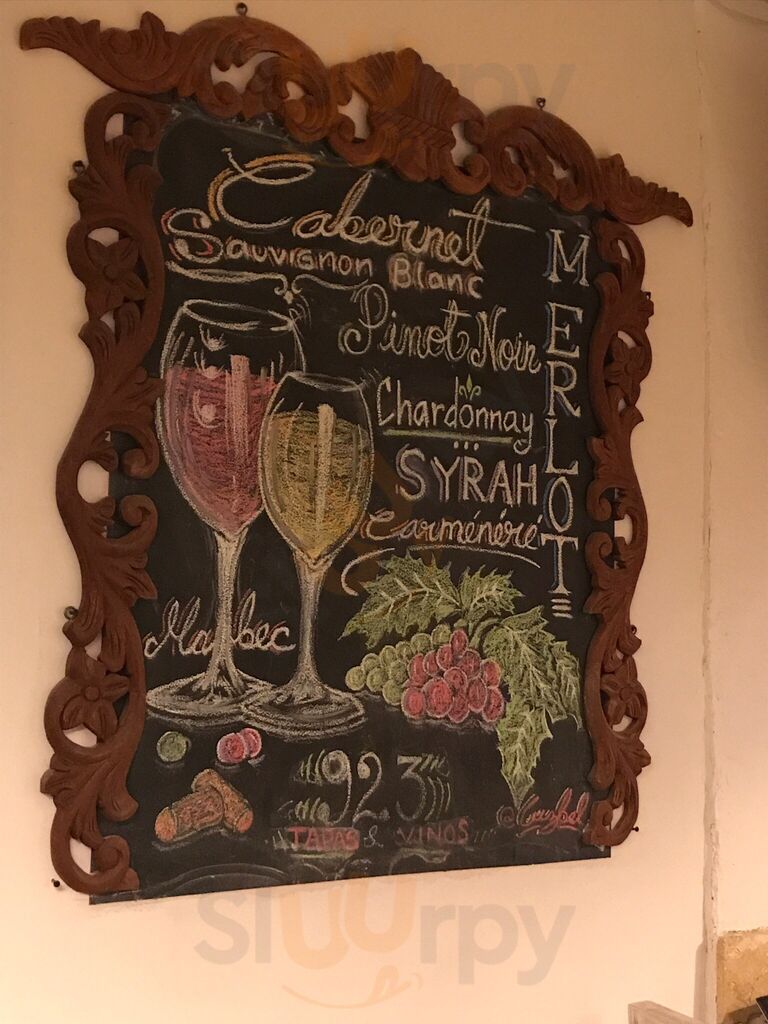 Cabernet
Sauvignon Blanc
MERLOT
Pinot Noir
Chardonnay
SYRAH
Carménéré
Malbec
923
TAPAS & VINOS
Sluurpy